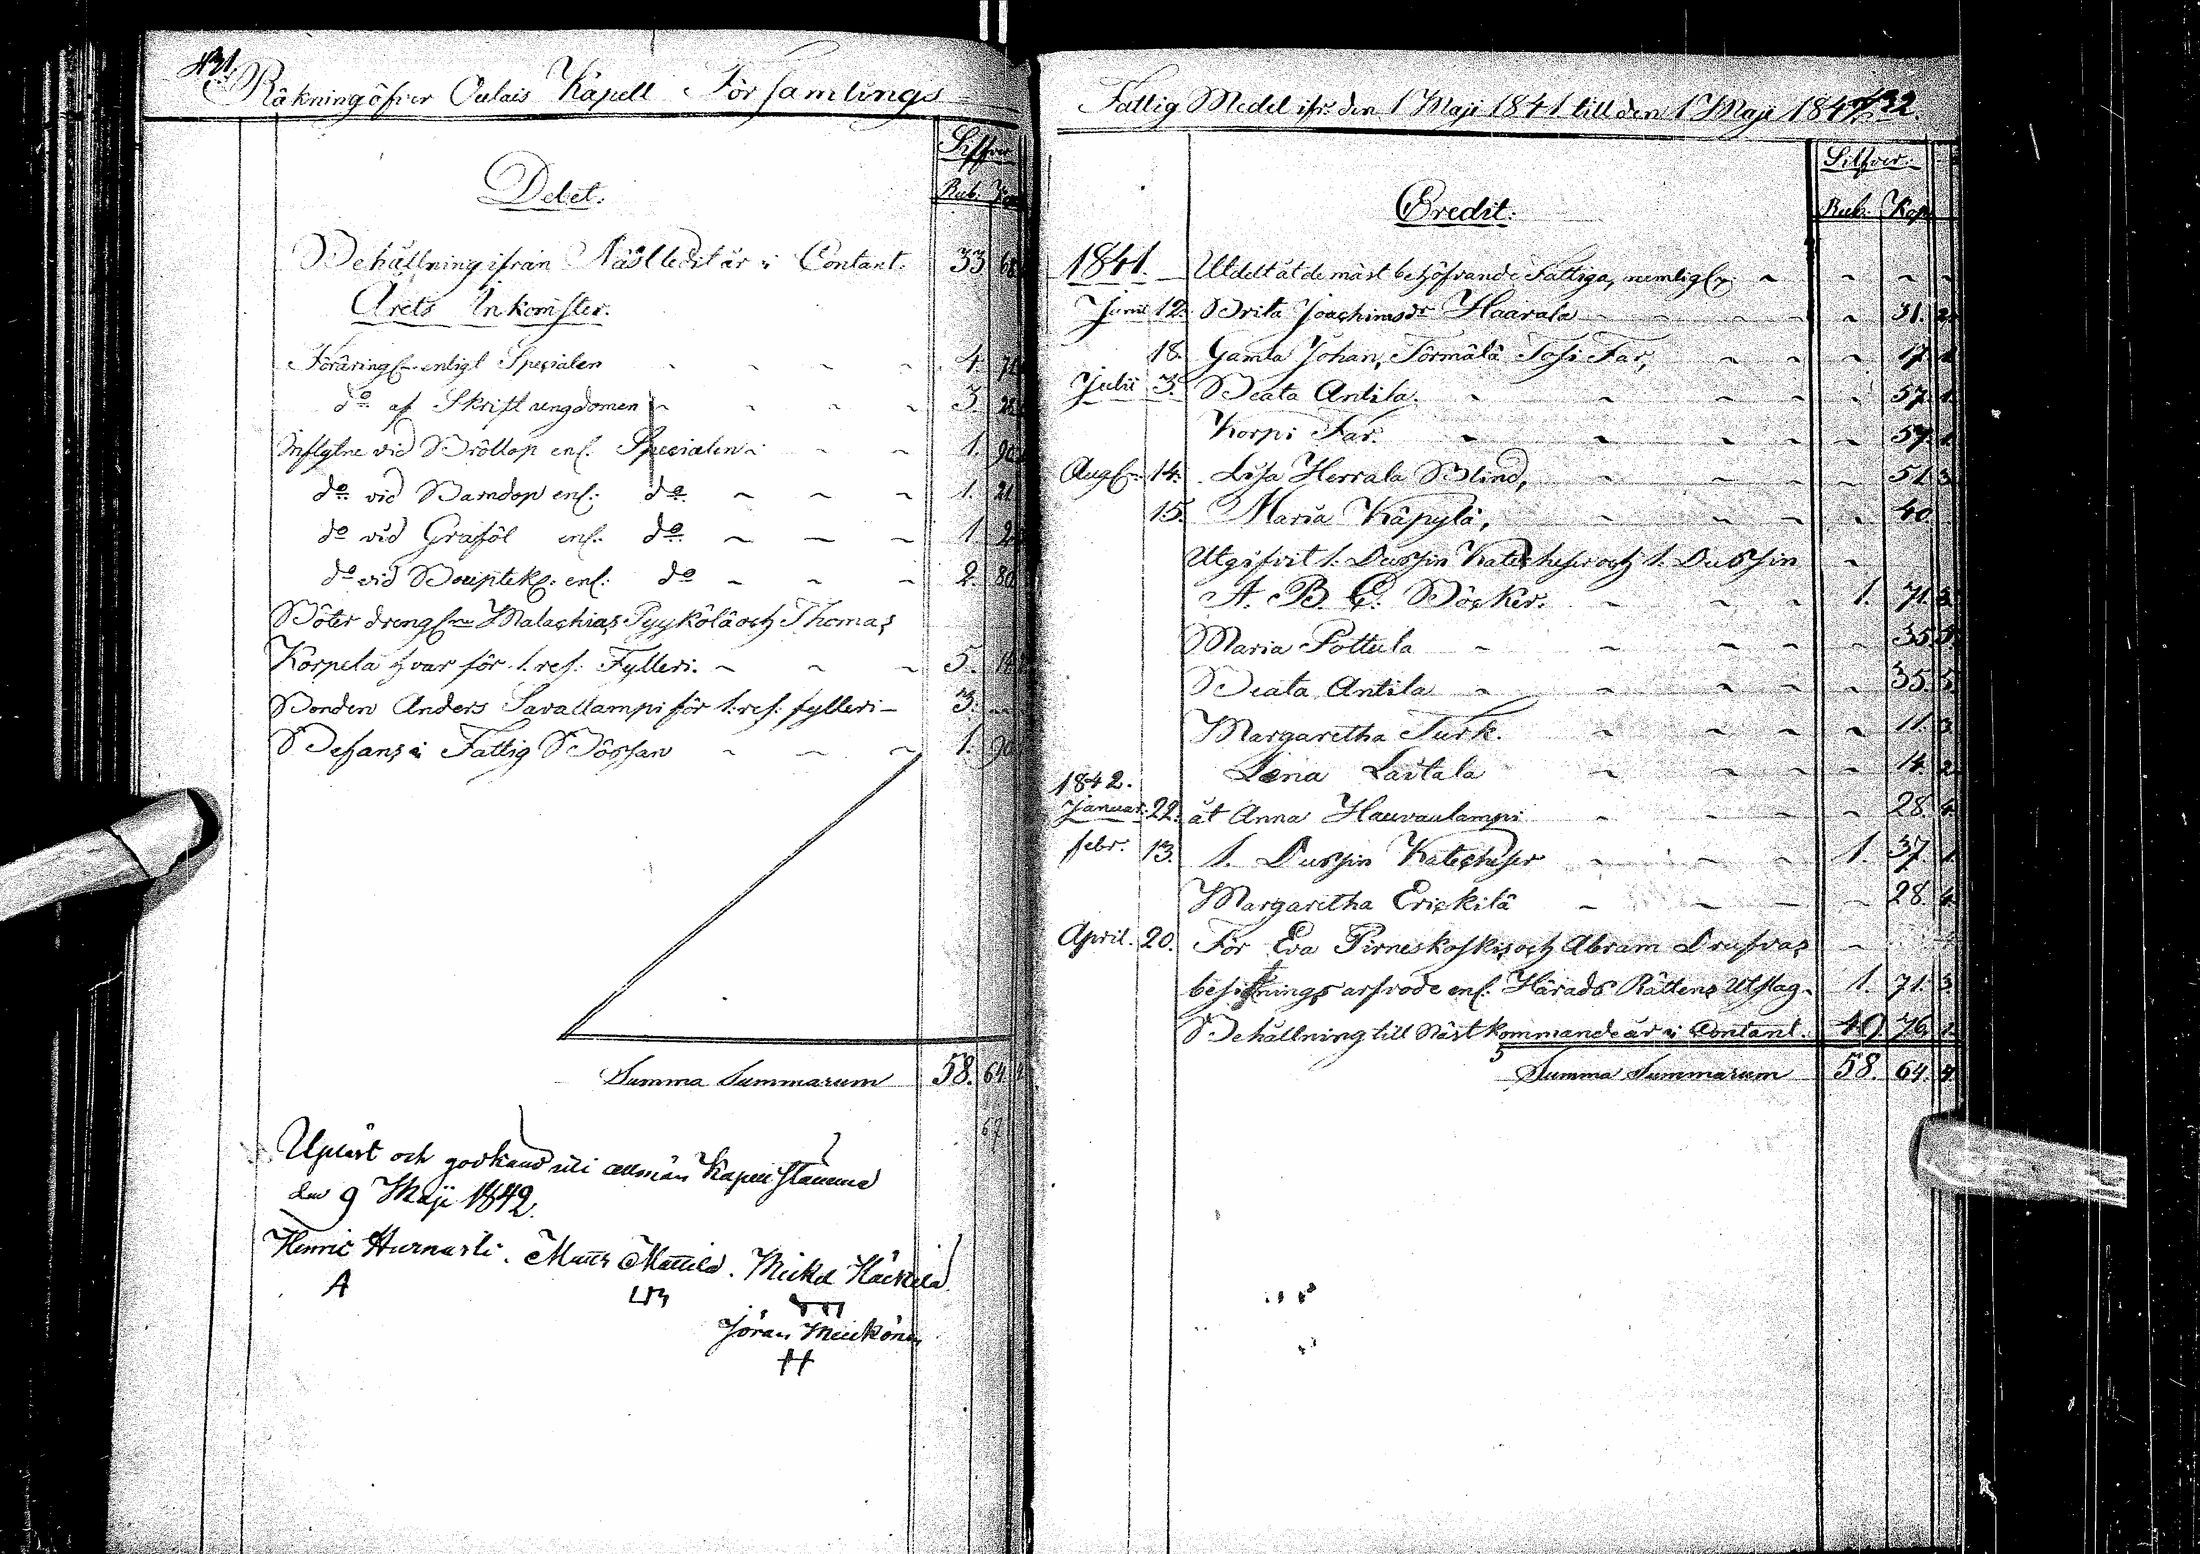 431.
Räkning öfver Oulais Kapell Församlings
Silfver
Rub. Kop
Debet.
Behållning ifrån Näst ledit år i Contant. 33
Årets Inkomster.
Föräring enligt Specialen 4. 71
do af Skrift ungdomen 3
Influtne vid Bröllop enl. Specialen 1. 90
do vid Barndop enl. do 1. 21
do vid Grafföl enl. do 1
do vid enl. do 2. 80
Böter dreng Malachias Pyykölä och Thomas
Korpela hvar för 1. res. Fylleri. 5. 14
Bonden Anders Savallampi för 1. res. fylleri 3. –
Befans i Fattig Bössan 1. 90
Summa Summarum 58. 64 4
67
Upläst och godkänd uti allmän Kapell stämma
den 9 Maji 1842.
Henric Hurnasti. Matts Mattila. Mickel Käckelä
A
Jöran Muckönen
H
432.
Fattig Medel ifr. den 1 Maji 1841 till den 1 Maji 184
Silfver.
Rub. Kop
Credit.
1841. Utdelt åt de mäst behöfvande Fattiga, nemlig
Junii 12. Brita Joachimsdr Haarala 31. 2.
18. Gamla Johan, Törmälä Tosi Far, 17. 1.
Julii 3. Beata Antila. 57. 1.
Korpi Far. 57. 1.
Aug 14. Lisa Herrala Blind, 51. 3.
15. Maria Käpylä, 40
Utgifvit 1. Dussin Katecheser och 1. Dussin
A. B. C. Böcker. 1. 71. 3.
Maria Pottula 35 5.
Beata Antila 35. 5.
Margaretha Turk. 11. 3.
Lena Laitala 14. 2.
1842.
Januar. 22. åt Anna Hauvaulampi 28. 4.
febr. 13. 1. Dussin Katecheser 1. 37. 1.
Margaretha Erickilä 28. 4.
April. 20. För Eva Pirneskoskis och Abram Drufvas
besiktnings arfvode enl. Härads Rättens Utslag 1. 71. 3.
Behållning till Näst kommande år i Contant. 49 76. 1.
Summa Summarum 58. 64. 4